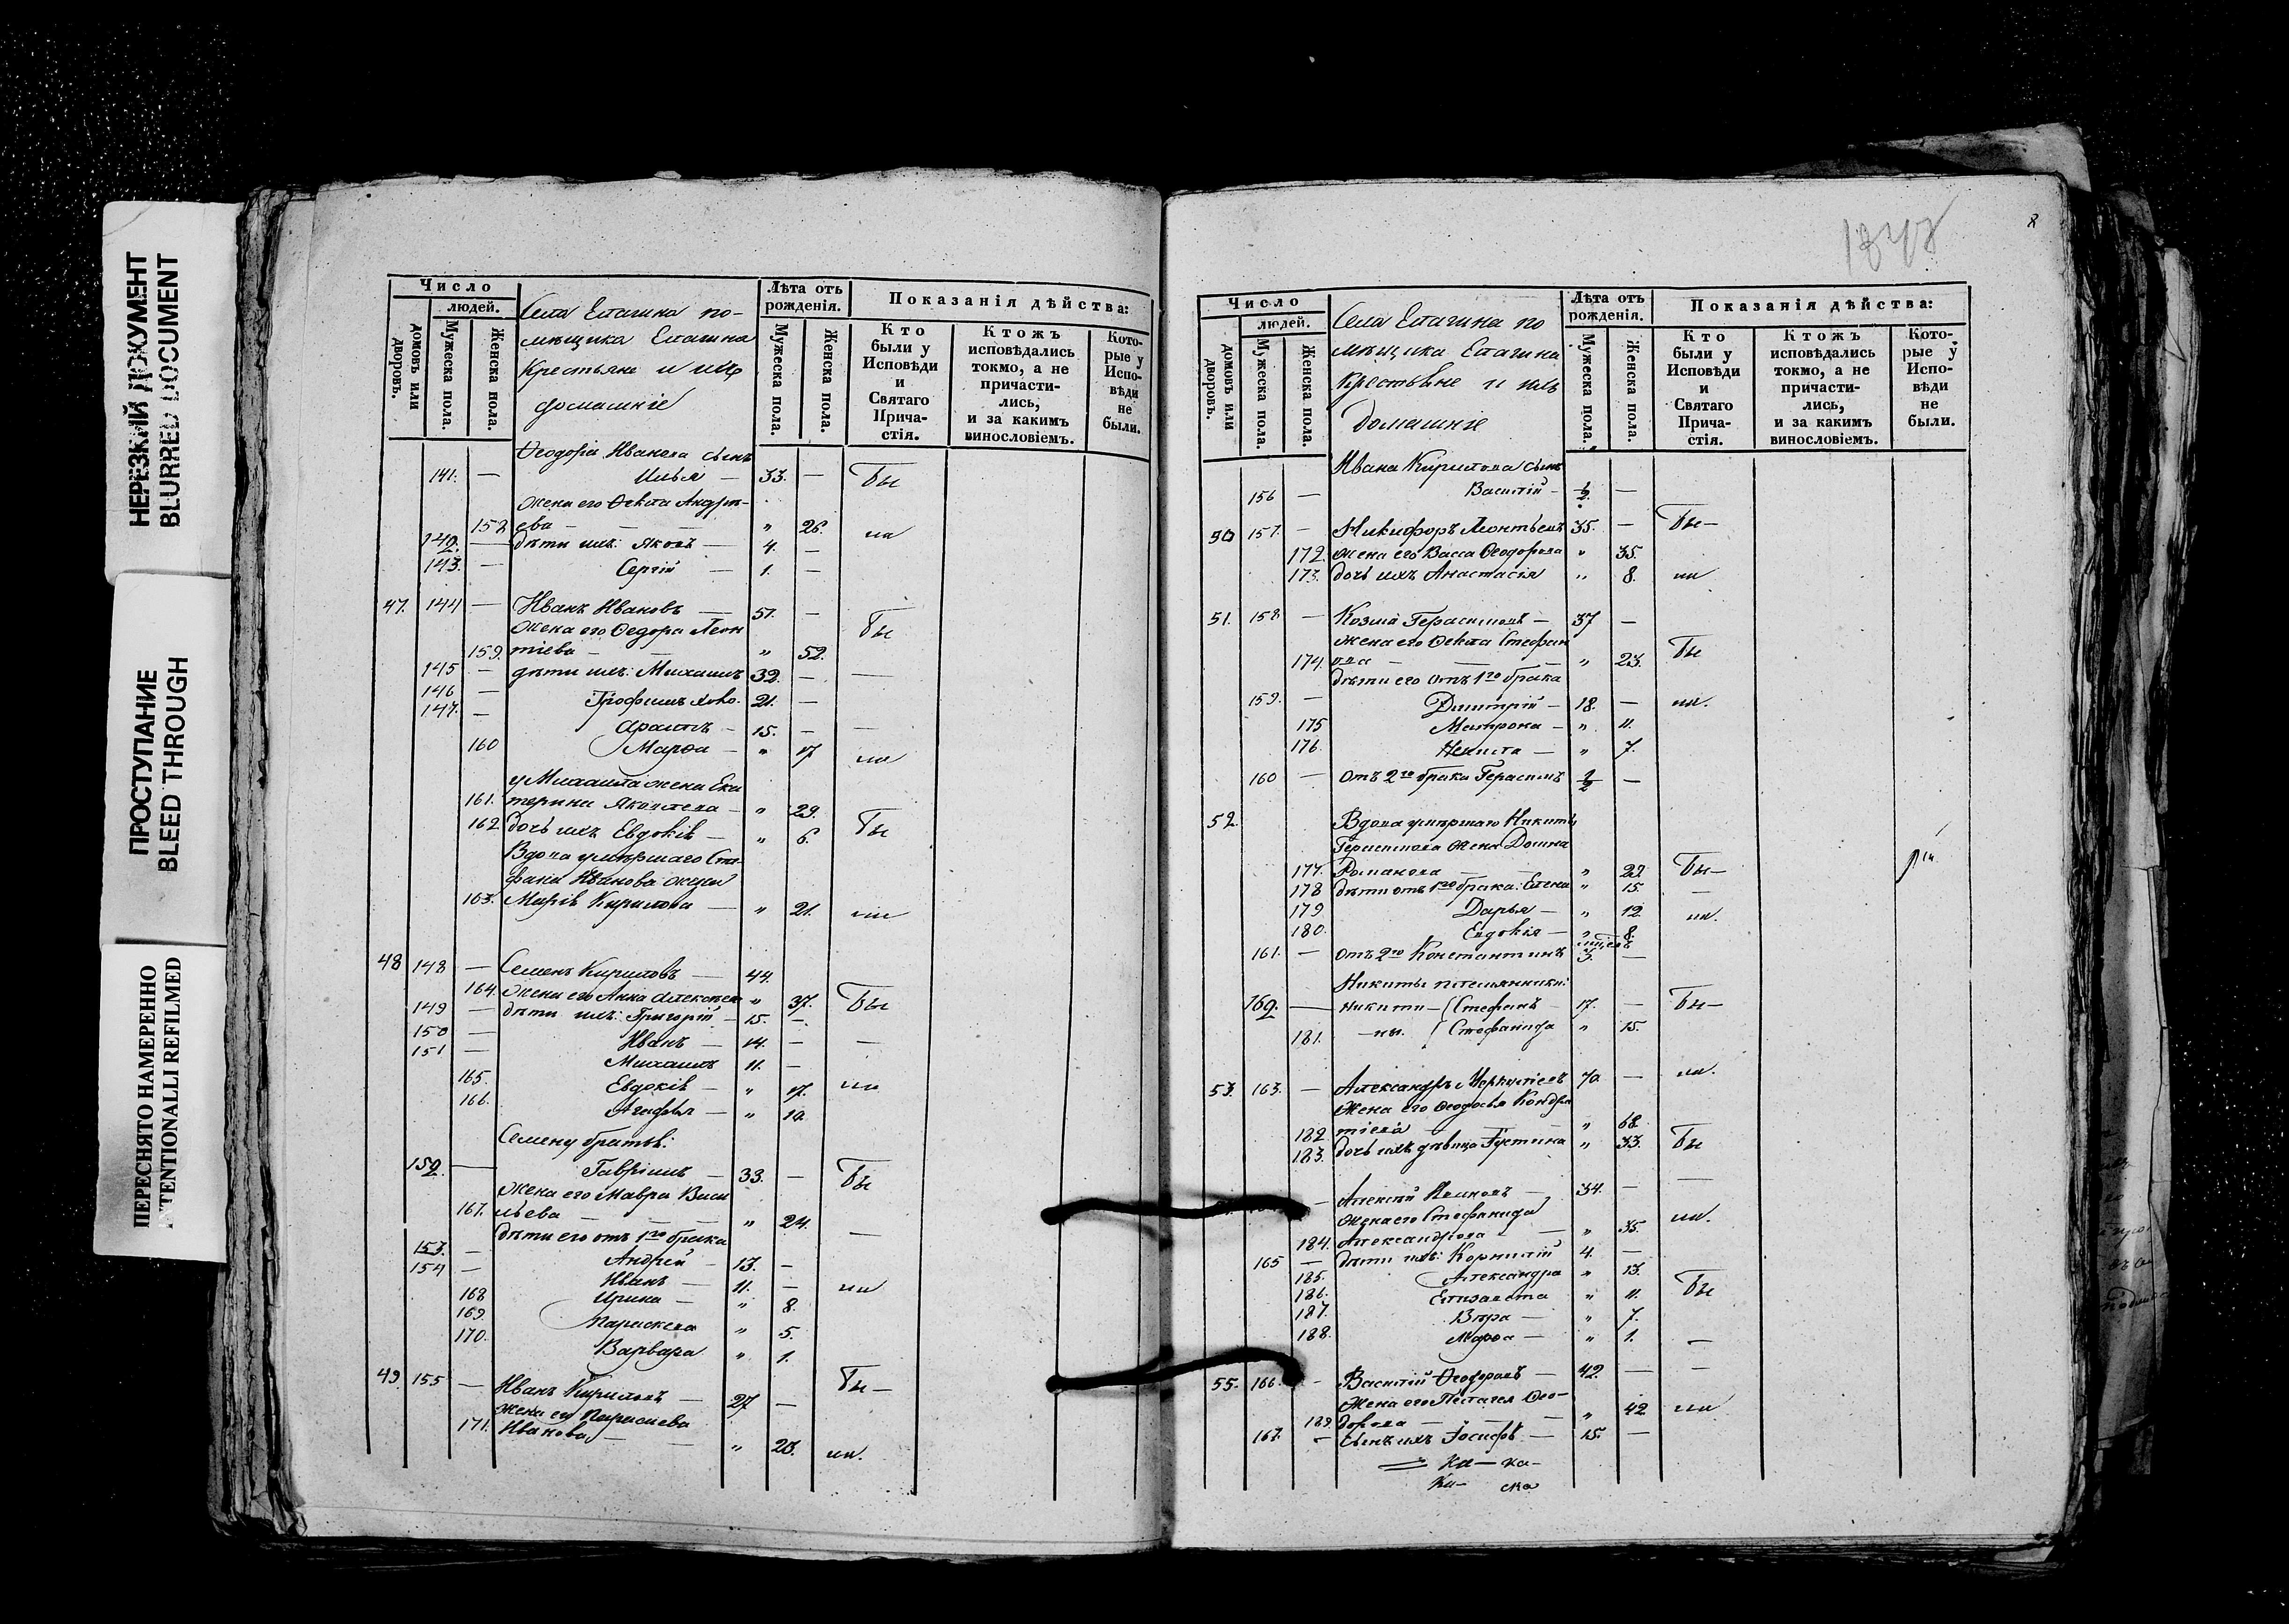 НЕРЕЗКИЙ ДОКУМЕНТ
BLURRED DOCUMENT
ПРОСТУПАНИЕ
BLEED THROUGH
ПЕРЕСНЯТО НАМЕРЕННО
INTENTIONALLI REFILMED
Число
людей.
домовъ или дворовъ.
Мужеска пола.
Женска пола.
Села Елагина по-
мѣщика Елагина
Крестьяне и ихъ
домашніе
Лѣта отъ рожденія.
Мужеска пола.
Женска пола.
Показанія дѣйства:
Кто были у Исповѣди и Святаго Прича-стія.
Ктожъ исповѣдались токмо, а не причасти-лись, и за какимъ винословіемъ.
Кото-рые у Испо-вѣди не были.
Ѳеодора Иванова сынъ
141. — Илья — 33. — Бы
жена его Ѳекла Андрѣ-
158 ева — — — " 26. ли
142. — дѣти ихъ: Яковъ — 4. —
143. — Сергій — 1. —
47. 144 — Иванъ Ивановъ — 57. —
жена его Ѳедора Леон Бы
159. тіева — — " 52.
145 — дѣти ихъ: Михаилъ 32. — —
146 — Трофимъ 21. —
147. — 15. — —
160 Марѳа — " 17 ли
у Михаила жена Ека
161. терина Яковлева — " 29.
162 дочь ихъ Евдокія — " 6. Бы
Вдова умершаго Сте-
фана Иванова жена
163. Марія Кирилова — " 21. ли
48 148 — Семенъ Кириловъ — 44.
164. жена его Анна Алексѣев " 37. Бы
149 — дѣти ихъ: Григорій — 15. —
150 — Иванъ — 14. — —
151 — Михаилъ 11. —
165. Евдокія — " 17. ли
166. Агафья — " 10.
Семену братья:
152. — Гавріилъ — 33. — Бы
жена его Мавра Васи
167. льева — — — " 24.
дѣти его отъ 1го брака —
153. — Андрей — 13. —
154 — Иванъ — 11. — ли
168 Ирина — " 8.
169 Параскева " 5.
170. Варвара " 1.
49. 155 — Иванъ Кириловъ — 27 — Бы —
жена его
171. Иванова — — " 28. ли.
1848
8
Число
людей.
домовъ или дворовъ.
Мужеска пола.
Женска пола.
Села Елагина по
мѣщика Елагина
Крестьяне и ихъ
домашніе
Лѣта отъ рожденія.
Мужеска пола.
Женска пола.
Показанія дѣйства:
Кто были у Исповѣди и Святаго Прича-стія.
Ктожъ исповѣдались токмо, а не причасти-лись, и за какимъ винословіемъ.
Кото-рые у Испо-вѣди не были.
Ивана Кирилова сынъ
156 — Василій — ½. —
50 157. — Никифоръ Леонтьевъ 35. — Бы —
172. жена его Васса Ѳеодорова " 35.
173. дочь ихъ Анастасія " 8. ли
51. 158 — Козма Герасимовъ — 37 —
жена его Ѳекла Стефан
174. ова — — — " 23. Бы
дѣти его отъ 1го брака
159. — Димитрій — 18. — ли.
175 Матрона — " 11.
176. — " 7.
160 — отъ 2го брака Герасимъ ½ —
52. Вдова умершаго Никиты
Герасимова жена Домна
177. Романова — — " 22. Бы —
178 дѣти отъ 1го брака: Елена " 15 —
179 Дарья — " 12 ли.
180. Евдокія — " 8.
161. — отъ 2го Константинъ 3. —
Никиты племянники:
162. — Никити- Стефанъ — 17. — Бы —
181. -ны. Стефанида " 15.
53. 163. — Александръ 70. — ли.
жена его Ѳеодосья Кондра
182 тіева — — " 68.
183. дочь ихъ дѣвица Іустина " 33. Бы
— Алексѣй — 34. — —
жена его Стефанида ли.
184. Александрова — — " 35.
165 — дѣти ихъ: Корнилій 4. —
185. Александра " 13.
186. Елизавета " 11. Бы
187. Вѣра — " 7.
188. Марѳа — " 1. —
55. 166. — Василій Ѳеодоровъ — 42. — —
жена его Пелагея Ѳео-
189 дорова — — — " 42 ли
167. — сынъ ихъ Іосифъ — 15. —